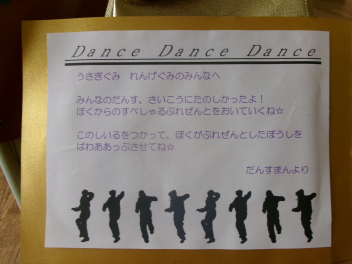 Dance Dance Dance
うさぎぐみ　れんげぐみのみんなへ
みんなのだんす、さいこうにたのしかったよ！
ぼくからのすぺしゃるぷれぜんとをおいていくね☆
このしいるをつかって、ぼくがぷれぜんとしたぼうしを
ぱわああっぷさせてね☆
だんすまんより